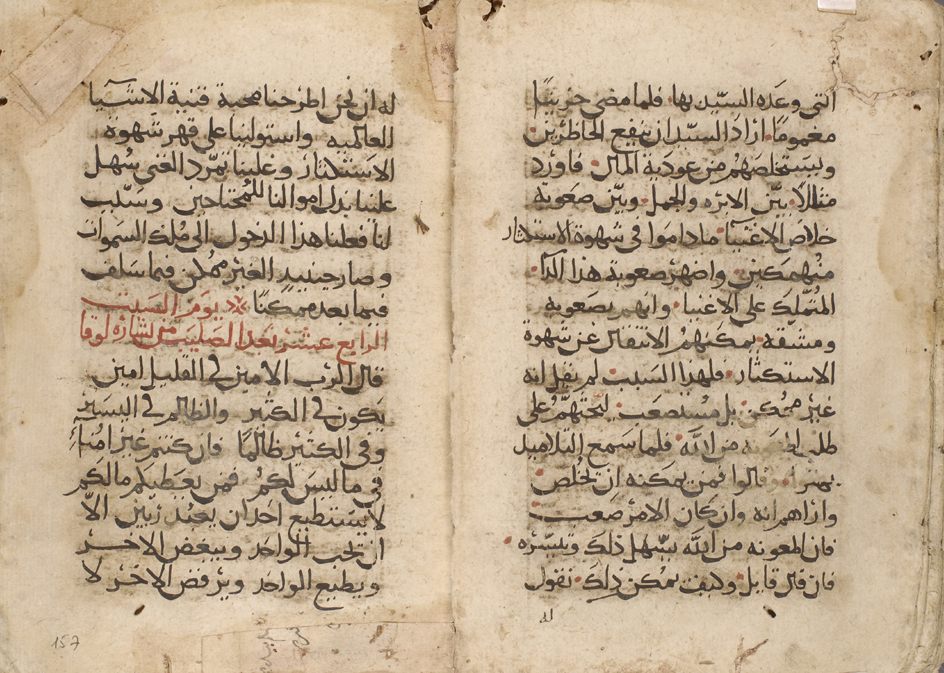 التي وعده السيد بها فلما مضى حزينًا
مغمومًا اراد السيد ان ينفع الحاظرين
ويستخلصهم من عبودية المال فاورد
مثالاً بين الابره والجمل وبين صعوبة
خلاص الاغنيا ما داموا في شهوة الاستكثار
منهمكين واضهر صعوبة هذا الدا
المتملك على الاغنيا وانهم بصعوبه
ومشقه يمكنهم الانتقال عن شهوة
الاستكثار فلهذا السبب لم يقل انه
غير ممكن بل مستصعب ليحثهم على
طلب من الله فلما سمع التلاميد
قالوا فمن يمكنه ان يخلص
واراهم انه وان كان الامر صعب
فان المعونه من الله تسهل ذلك وتيسره
فان قال قايل وكيف يمكن ذلك نقول
له
له ان نحن اطرحنا محبة قنية الاشيا
العالميه واستولينا على قهر شهوة
الاستكثار وغلبنا تمرد الغنى سهل
علينا بدل اموالنا للمحتاجين وسبب
لنا فعلنا هذا الدخول الى ملك السموات
وصار حينيد الغير ممكن فيما سلف
فيما بعد ممكنًا يوم السبت
الرابع عشر بعد الصليب من بشارة لوقا
قال الرب الامين في القليل امين
يكون في الكثير والظالم في اليسير
وفي الكثير ظالمًا فان كنتم غير امناء
في ما ليس لكم فمن يعطيكم مالكم
لا يستطيع احد ان يعبد ربين الا
ان يحب الواحد ويبغض الاخر
ويطيع الواحد ويرفض الاخر لا
157